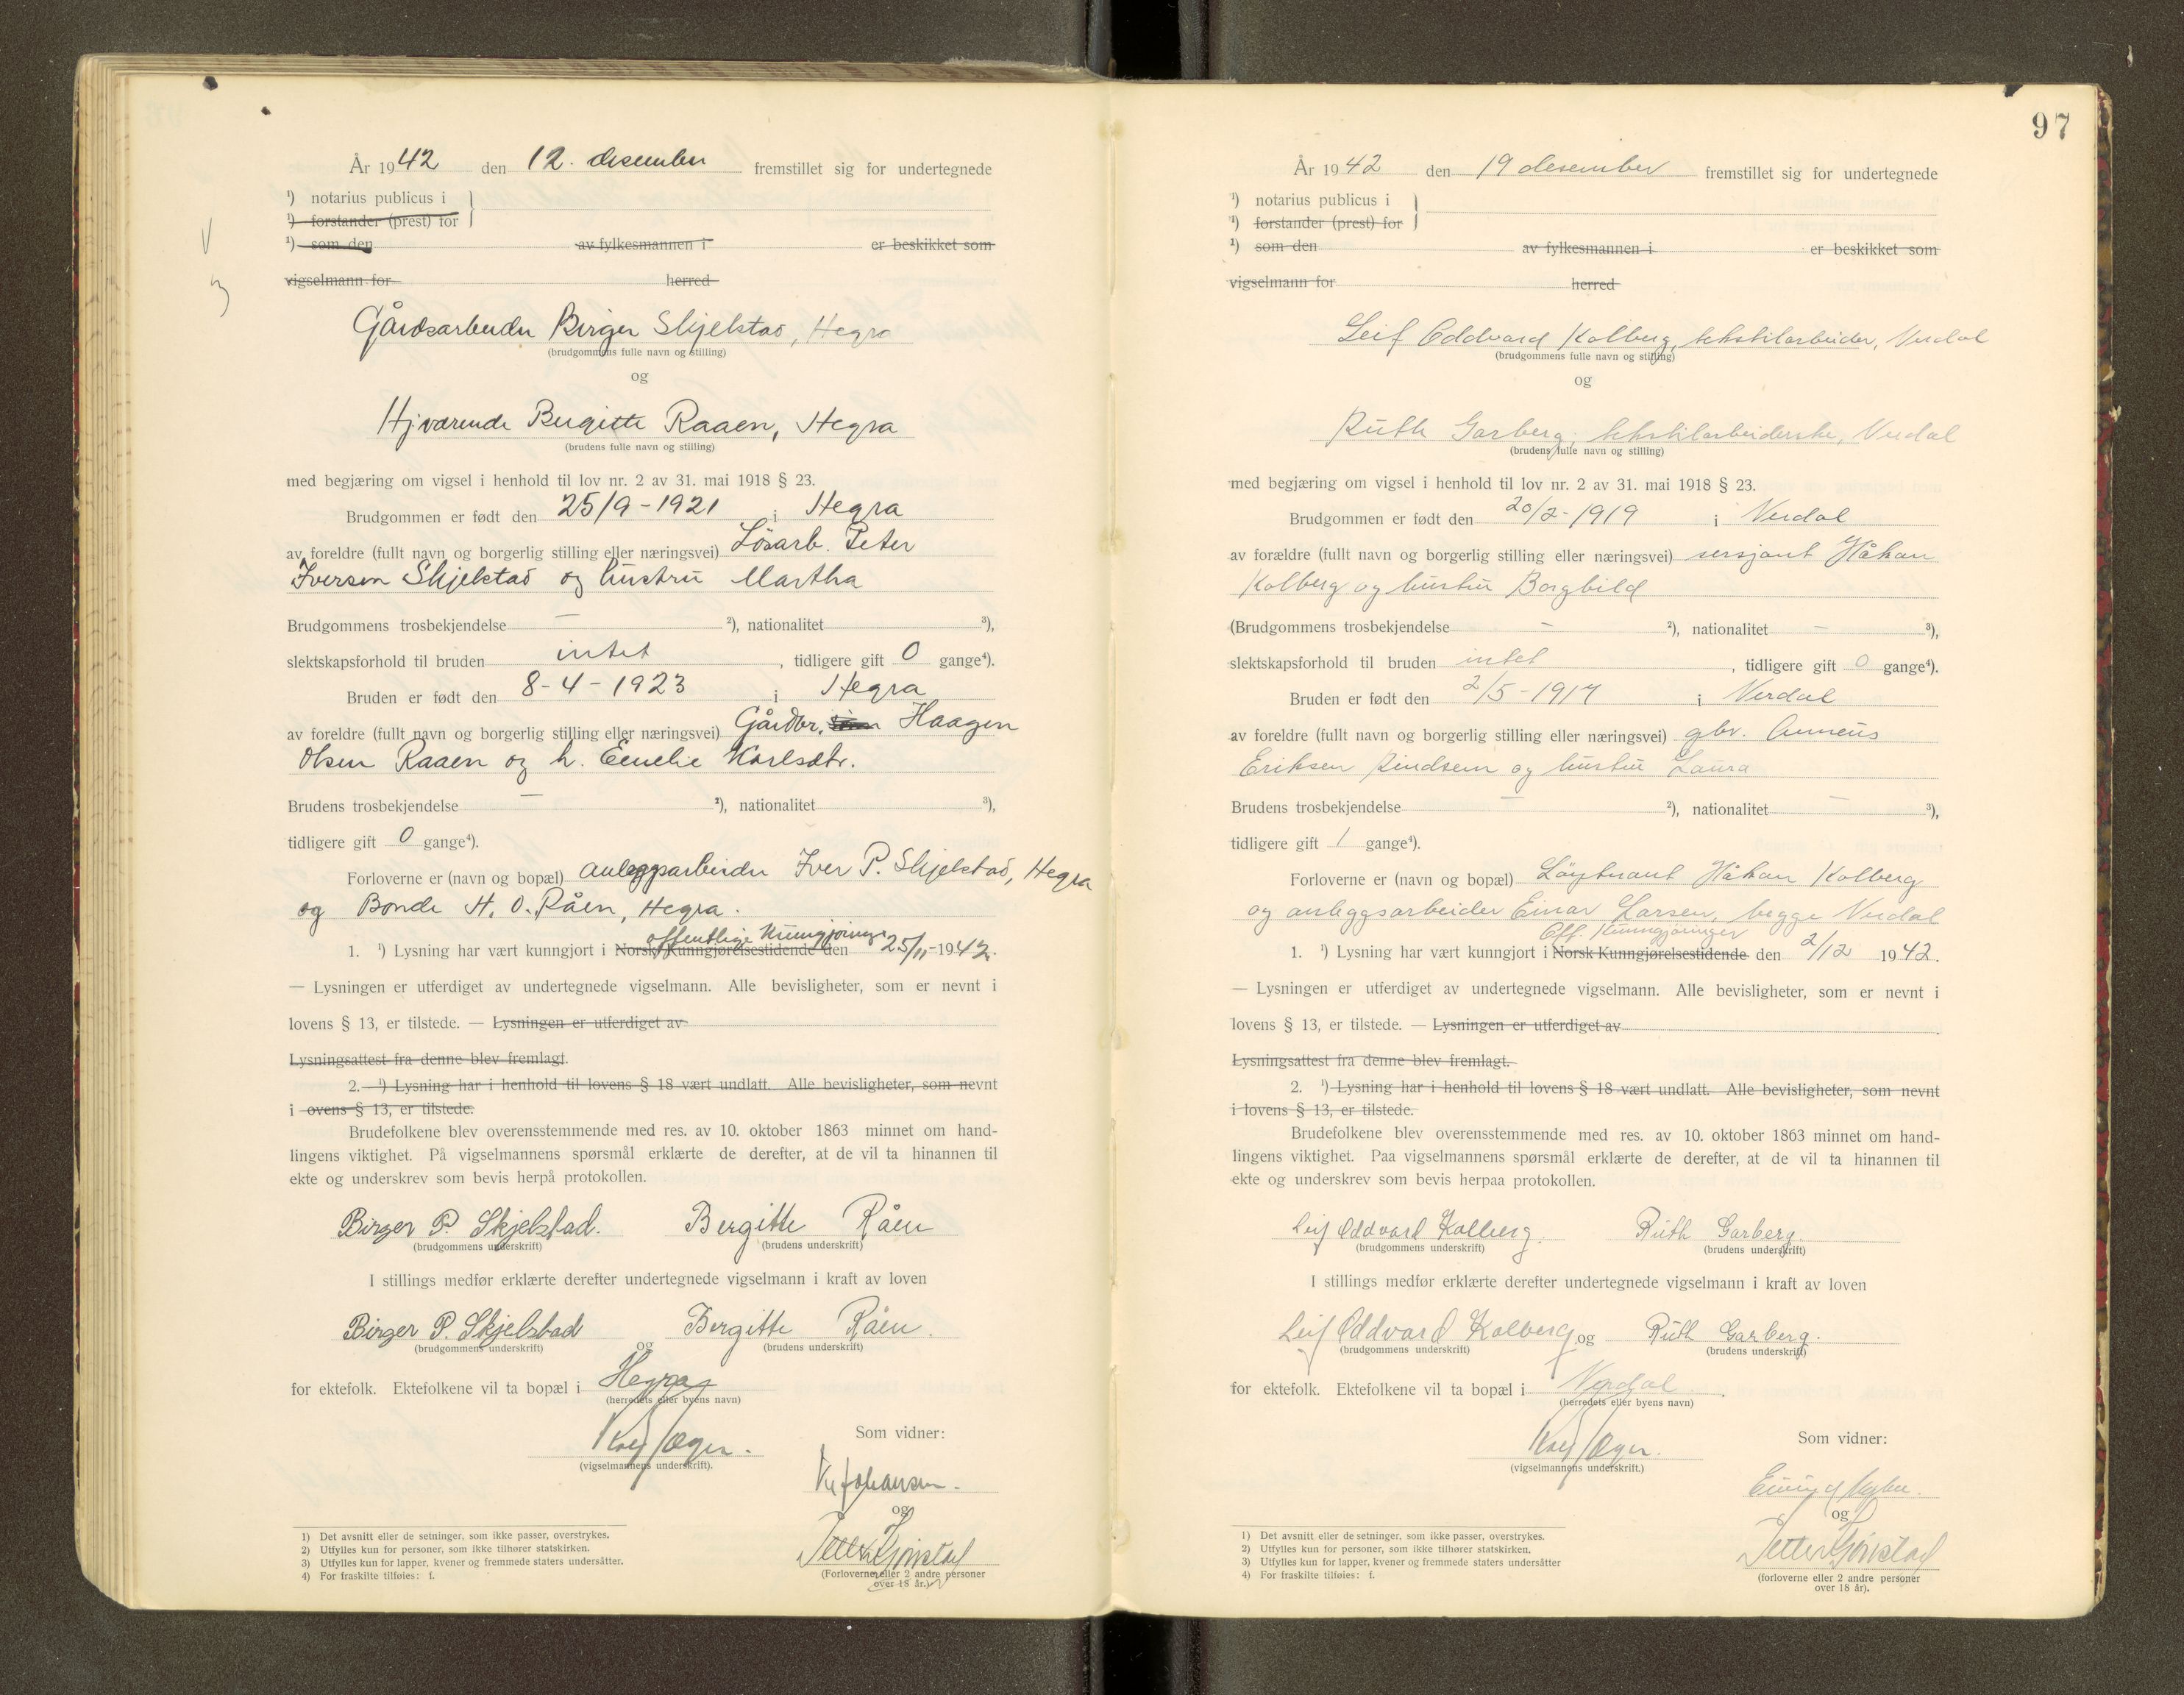 År 1942 den 12. desember fremstillet sig for undertegnede
¹) notarius publicus i
¹) forstander (prest) for
¹) som den av fylkesmannen i er beskikket som
vigselmann for herred
Gårdsarbeider Birger Skjelstad, Hegra
(brudgommens fulle navn og stilling)
og
Hjværende Bergitte Raaen, Hegra
(brudens fulle navn og stilling)
med begjæring om vigsel i henhold til lov nr. 2 av 31. mai 1918 § 23.
Brudgommen er født den 25/9-1921 i Hegra
av foreldre (fullt navn og borgerlig stilling eller næringsvei) Løsarb. Peter
Iversen Skjelstad og hustru Martha
Brudgommens trosbekjendelse — ²), nationalitet ³),
slektskapsforhold til bruden intet, tidligere gift 0 gange⁴).
Bruden er født den 8-4-1923 i Hegra
av foreldre (fullt navn og borgerlig stilling eller næringsvei) Gårdbr. Haagen
Olsen Raaen og h. Emelie Karlsdtr.
Brudens trosbekjendelse — ²), nationalitet ³),
tidligere gift 0 gange⁴).
Forloverne er (navn og bopæl) anleggsarbeider Iver P. Skjelstad, Hegra
og Bonde H. O. Råen, Hegra.
offentlige Kunngjøringer
1. ¹) Lysning har vært kunngjort i Norsk Kunngjørelsestidende den 25/11-1942.
— Lysningen er utferdiget av undertegnede vigselmann. Alle bevisligheter, som er nevnt i
lovens § 13, er tilstede. — Lysningen er utferdiget av
Lysningsattest fra denne blev fremlagt.
2. ¹) Lysning har i henhold til lovens § 18 vært undlatt. Alle bevisligheter, som nevnt
i ovens § 13, er tilstede.
Brudefolkene blev overensstemmende med res. av 10. oktober 1863 minnet om hand-
lingens viktighet. På vigselmannens spørsmål erklærte de derefter, at de vil ta hinannen til
ekte og underskrev som bevis herpå protokollen.
Birger P. Skjelstad. Bergitte Råen
(brudgommens underskrift) (brudens underskrift)
I stillings medfør erklærte derefter undertegnede vigselmann i kraft av loven
Birger P. Skjelstad og Bergitte Råen.
(brudgommens underskrift) (brudens underskrift)
for ektefolk. Ektefolkene vil ta bopæl i Hegra
(herredets eller byens navn)
Som vidner:
(vigselmannens underskrift).
Johansen.
og
Petter Gjønstad
(Forloverne eller 2 andre personer
over 18 år.)
1) Det avsnitt eller de setninger, som ikke passer, overstrykes.
2) Utfylles kun for personer, som ikke tilhører statskirken.
3) Utfylles kun for lapper, kvener og fremmede staters undersåtter.
4) For fraskilte tilføies: f.
97
År 1942 den 19 desember fremstillet sig for undertegnede
¹) notarius publicus i
¹) forstander (prest) for
¹) som den av fylkesmannen i er beskikket som
vigselmann for herred
Leif Oddvard Kolberg, tekstilarbeider, Verdal
(brudgommens fulle navn og stilling)
og
Ruth Garberg, tekstilarbeiderske, Verdal
(brudens fulle navn og stilling)
med begjæring om vigsel i henhold til lov nr. 2 av 31. mai 1918 § 23.
Brudgommen er født den 20/2-1919 i Verdal
av forældre (fullt navn og borgerlig stilling eller næringsvei) sersjant Håkan
Kolberg og hustru Borghild
(Brudgommens trosbekjendelse — ²), nationalitet — ³),
slektskapsforhold til bruden intet, tidligere gift 0 gange⁴).
Bruden er født den 2/5-1917 i Verdal
av foreldre (fullt navn og borgerlig stilling eller næringsvei) gbr. Anneus
Eriksen Rindsem og hustru Laura
Brudens trosbekjendelse — ²), nationalitet — ³),
tidligere gift 1 gange⁴).
Forloverne er (navn og bopæl) Løytnant Håkan Kolberg
og anleggsarbeider Einar Larsen, begge Verdal
Off. Kunngjøringer
1. ¹) Lysning har vært kunngjort i Norsk Kunngjørelsestidende den 2/12 1942.
— Lysningen er utferdiget av undertegnede vigselmann. Alle bevisligheter, som er nevnt i
lovens § 13, er tilstede. — Lysningen er utferdiget av .
Lysningsattest fra denne blev fremlagt.
2. ¹) Lysning har i henhold til lovens § 18 vært undlatt. Alle bevisligheter, som nevnt
i lovens § 13, er tilstede.
Brudefolkene blev overensstemmende med res. av 10. oktober 1863 minnet om hand-
lingens viktighet. Paa vigselmannens spørsmål erklærte de derefter, at de vil ta hinannen til
ekte og underskrev som bevis herpaa protokollen.
Leif Oddvard Kolberg. Ruth Garberg.
(brudgommens underskrift) (brudens underskrift)
I stillings medfør erklærte derefter undertegnede vigselmann i kraft av loven
Leif Oddvard Kolberg og Ruth Garberg.
(brudgommens underskrift) (brudens underskrift)
for ektefolk. Ektefolkene vil ta bopæl i Verdal.
(herredets eller byens navn)
Som vidner:
(vigselmannens underskrift.)
og
Petter Gjønstad
(forloverne eller 2 andre personer
over 18 år).
1) Det avsnitt eller de setninger, som ikke passer, overstrykes.
2) Utfylles kun for personer, som ikke tilhører statskirken.
3) Utfylles kun for lapper, kvener og fremmede staters undersåtter
4) For fraskilte tilføies: f.